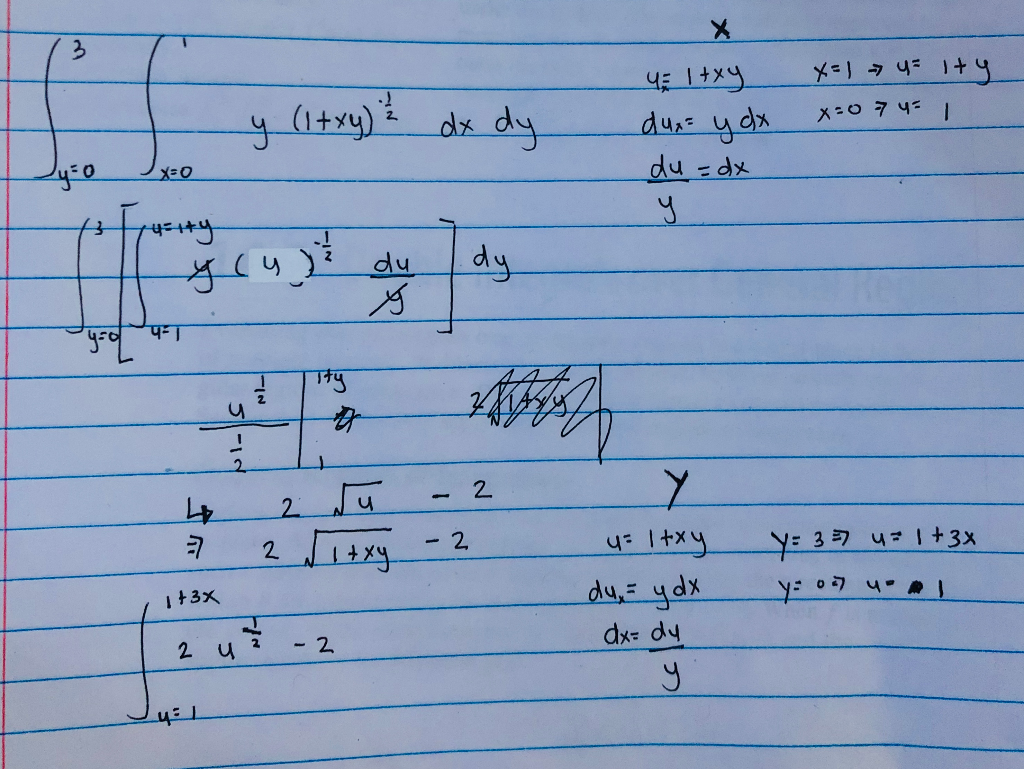 ∫_{y=0}^{3} ∫_{x=0}^{1} y (1+xy)^{-1/2} dx dy
x
u= 1+xy x=1 → u= 1+y
du_x= y dx x=0 ⇒ u= 1
du/y = dx
∫_{y=0}^{3} [ ∫_{u=1}^{u=1+y} y (u)^{-1/2} du/y ] dy
u^{1/2} / (1/2) |_{1}^{1+y}
↳ 2 √u - 2
⇒ 2 √(1+xy) - 2
y
u= 1+xy y= 3 ⇒ u= 1+3x
du_x= y dx y= 0 ⇒ u= 1
dx= du/y
∫_{u=1}^{1+3x} 2 u^{1/2} - 2